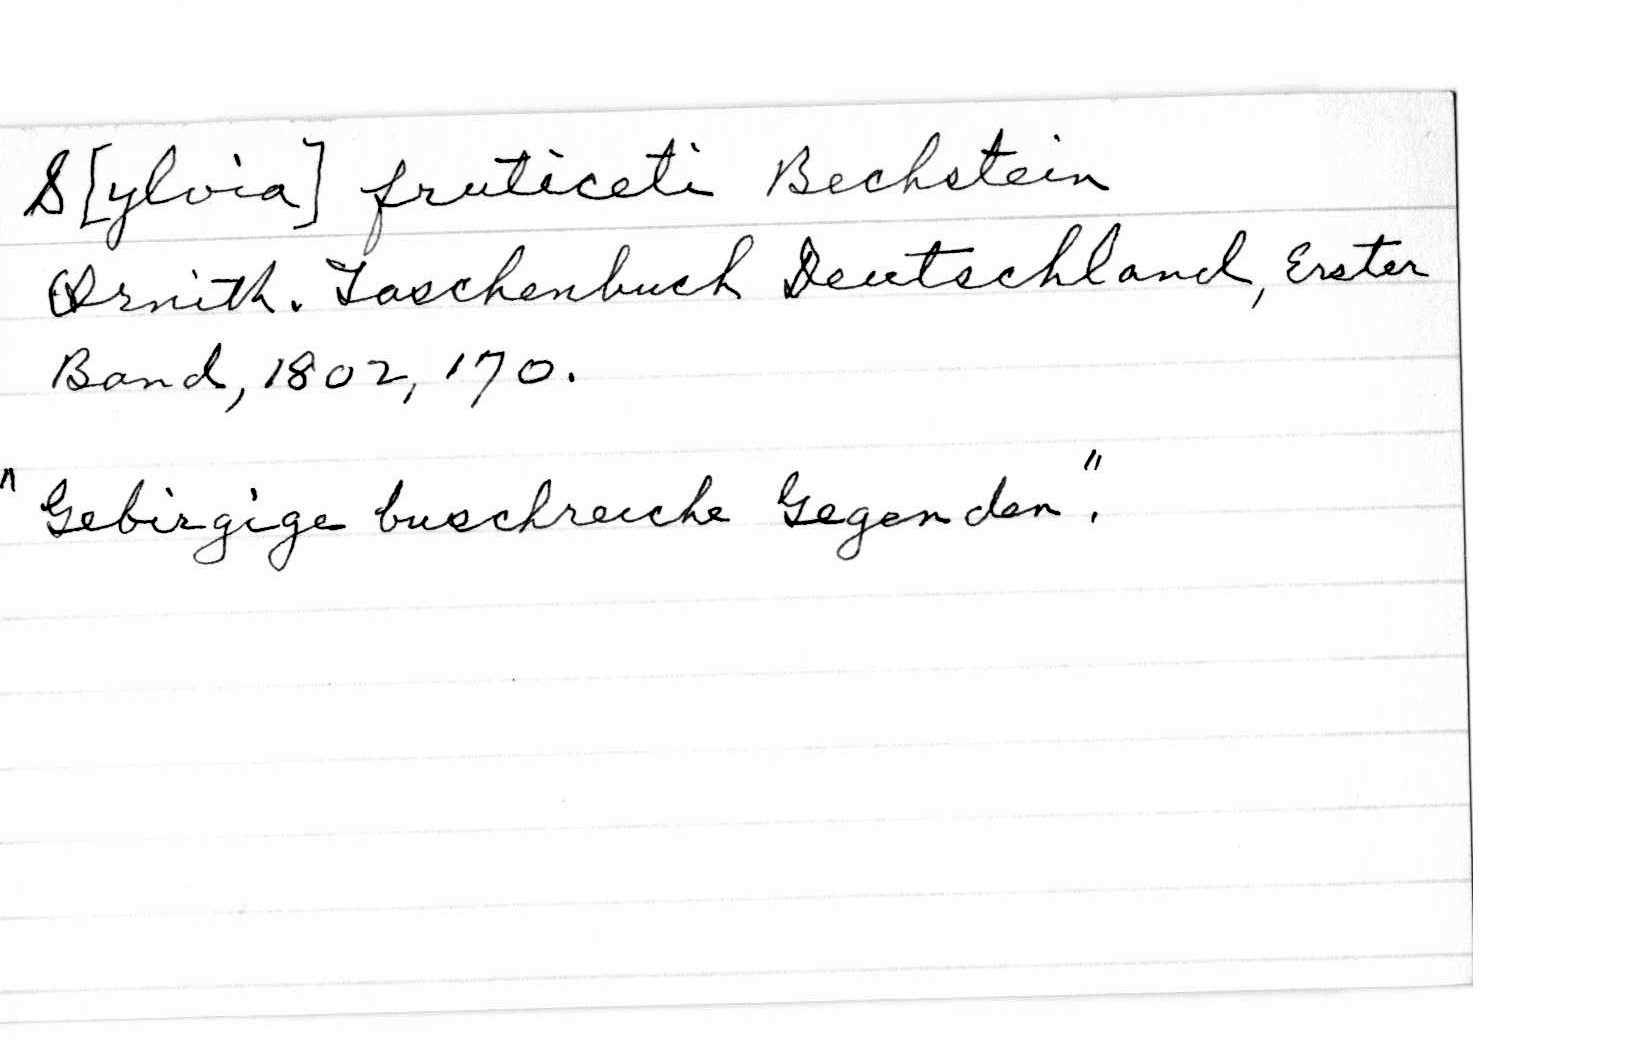 S[ylvia] fruticeti Bechstein
Ornith. Taschenbuch Deutschland, Erster
Band, 1802, 170.
"Gebirgige buschreiche Gegenden".